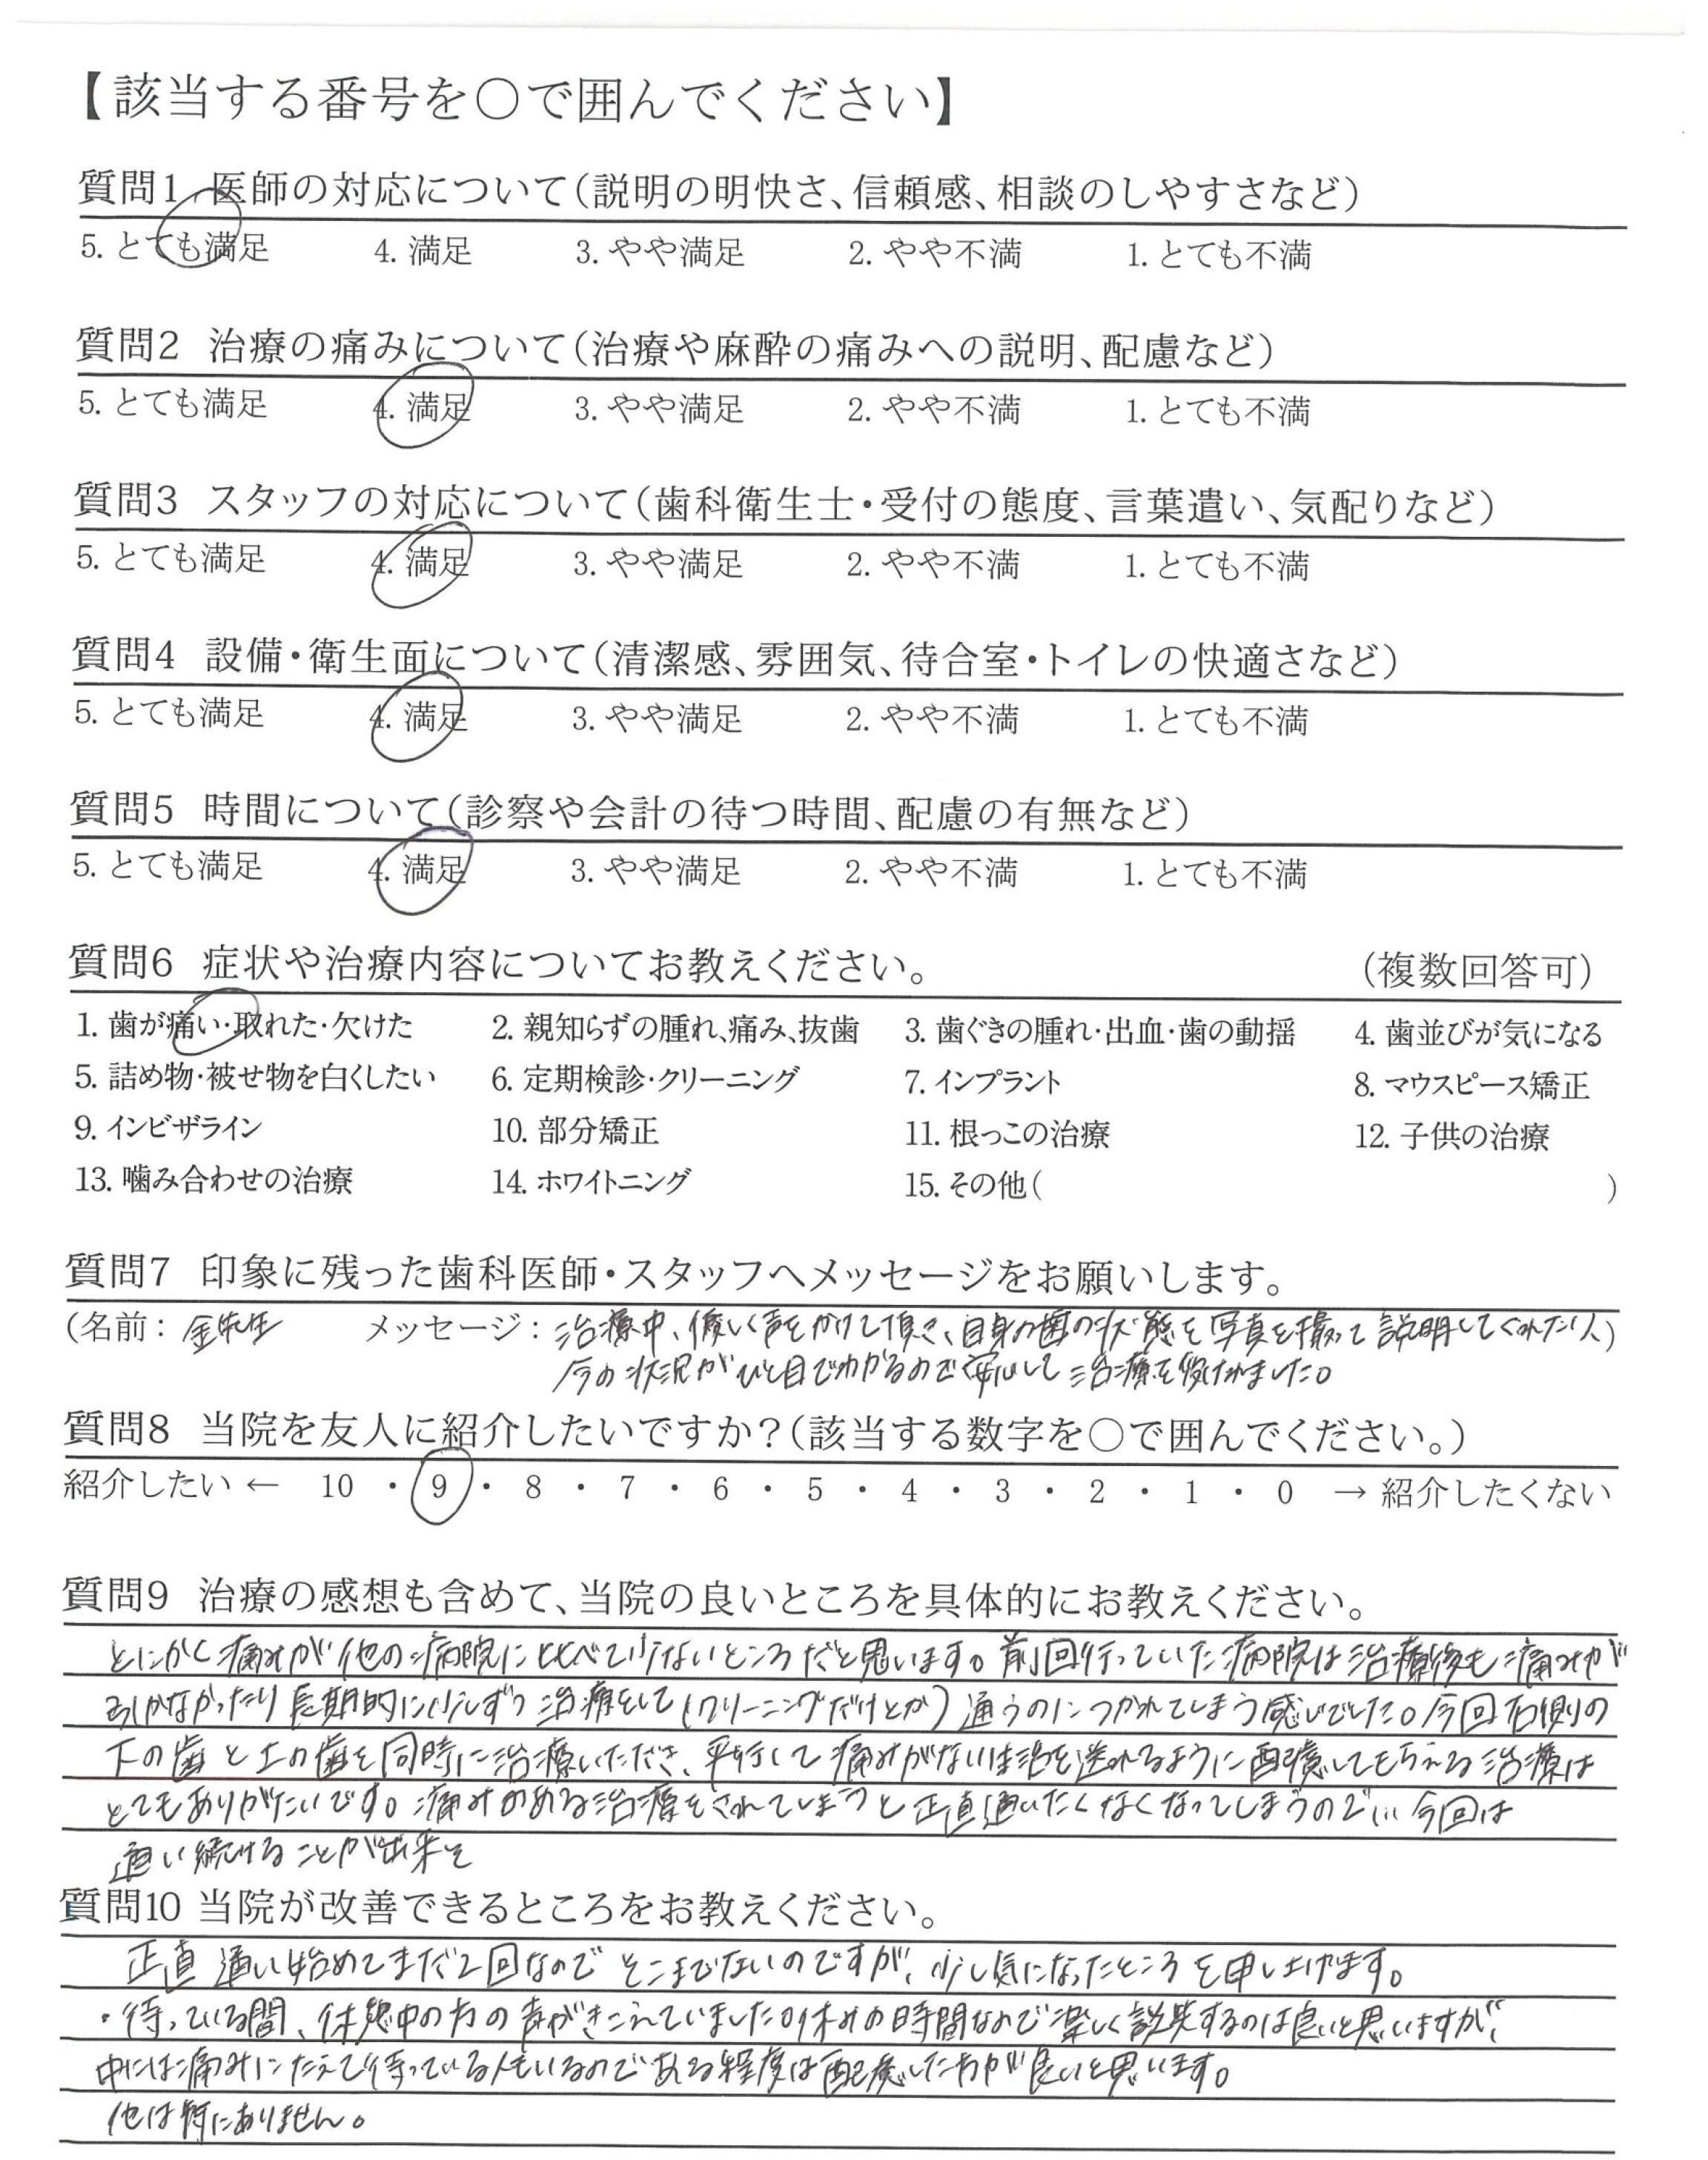 【該当する番号を○で囲んでください】
質問1 医師の対応について(説明の明快さ、信頼感、相談のしやすさなど)
5. とても満足 4. 満足 3. やや満足 2. やや不満 1. とても不満
質問2 治療の痛みについて(治療や麻酔の痛みへの説明、配慮など)
5. とても満足 4. 満足 3. やや満足 2. やや不満 1. とても不満
質問3 スタッフの対応について(歯科衛生士・受付の態度、言葉遣い、気配りなど)
5. とても満足 4. 満足 3. やや満足 2. やや不満 1. とても不満
質問4 設備・衛生面について(清潔感、雰囲気、待合室・トイレの快適さなど)
5. とても満足 4. 満足 3. やや満足 2. やや不満 1. とても不満
質問5 時間について(診察や会計の待つ時間、配慮の有無など)
5. とても満足 4. 満足 3. やや満足 2. やや不満 1. とても不満
質問6 症状や治療内容についてお教えください。 (複数回答可)
1. 歯が痛い・取れた・欠けた 2. 親知らずの腫れ、痛み、抜歯 3. 歯ぐきの腫れ・出血・歯の動揺 4. 歯並びが気になる
5. 詰め物・被せ物を白くしたい 6. 定期検診・クリーニング 7. インプラント 8. マウスピース矯正
9. インビザライン 10. 部分矯正 11. 根っこの治療 12. 子供の治療
13. 噛み合わせの治療 14. ホワイトニング 15. その他( )
質問7 印象に残った歯科医師・スタッフへメッセージをお願いします。
(名前: 金先生 メッセージ: 治療中、優しく声をかけて頂き、自身の歯の状態を写真を撮って説明してくれたり)
今の状況がひと目でわかるので安心して治療を受けれました。
質問8 当院を友人に紹介したいですか?(該当する数字を○で囲んでください。)
紹介したい ← 10 ・ 9 ・ 8 ・ 7 ・ 6 ・ 5 ・ 4 ・ 3 ・ 2 ・ 1 ・ 0 → 紹介したくない
質問9 治療の感想も含めて、当院の良いところを具体的にお教えください。
とにかく痛みが他の病院に比べて少ないところだと思います。前回行っていた病院は治療後も痛みが
引かなかったり長期的に少しずつ治療をして(クリーニングだけとか)通うのにつかれてしまう感じでした。今回右側の
下の歯と上の歯を同時に治療いただき、平行して痛みがない生活を送れるように配慮してもらえる治療は
とてもありがたいです。痛みのある治療をされてしまうと正直通いたくなくなってしまうので… 今回は
通い続けることが出来そ
質問10 当院が改善できるところをお教えください。
正直通い始めてまだ2回なのでそこまでないのですが、少し気になったところを申し上げます。
・待っている間、休憩中の方の声がきこえていました。休みの時間なので楽しく談笑するのは良いと思いますが、
中には痛みにたえて待っている人もいるのである程度は配慮した方が良いと思います。
他は特にありません。